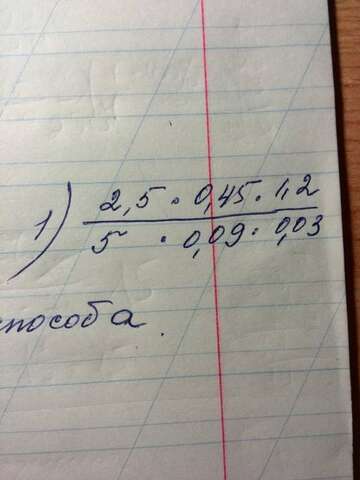 1) 2,5 · 0,45 · 1,2
5 · 0,09 · 0,03
способа.